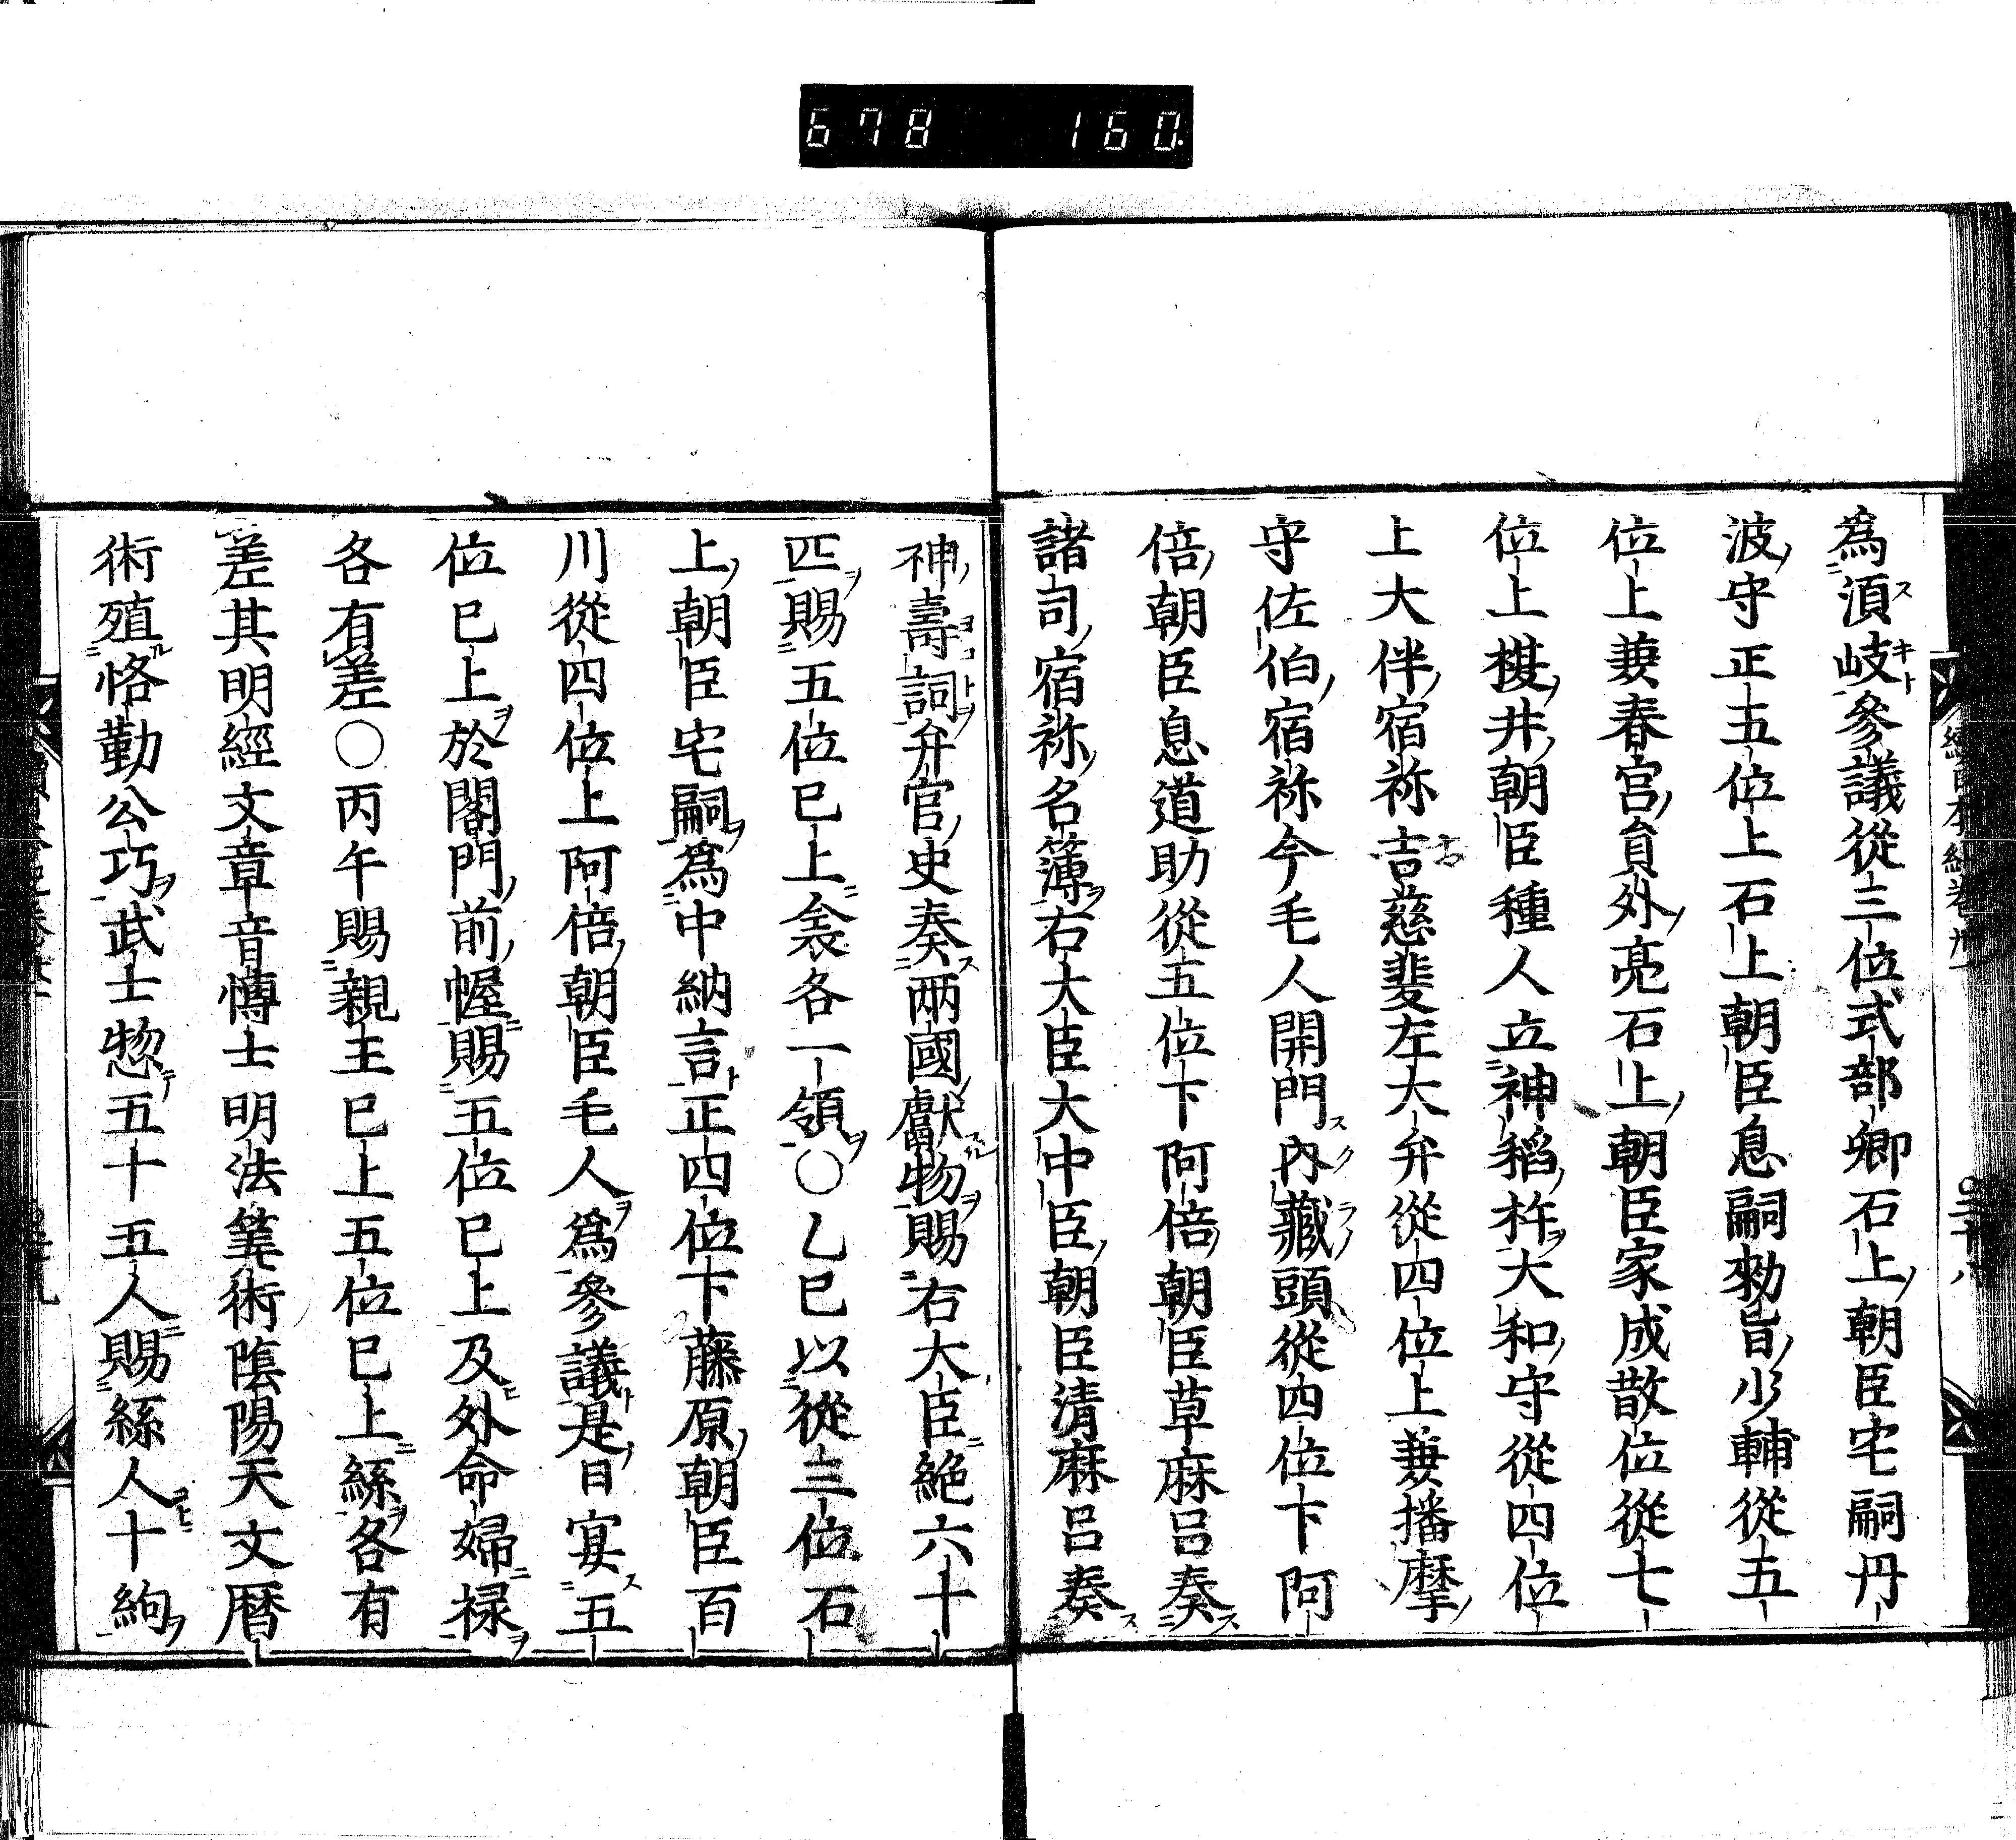 678 160.
爲湏岐參議從三位式部卿石上朝臣宅嗣丹
波守正五位上石上朝臣息嗣勑旨少輔從五
位上兼春宮貟外亮石上朝臣家成散位從七
位上榎井朝臣種人立神稻杵大和守從四位
上大伴宿祢古慈斐左大弁從四位上兼播摩
守佐伯宿祢今毛人開門內藏頭從四位下阿
倍朝臣息道助從五位下阿倍朝臣草麻呂奏
諸司宿祢名簿右大臣大中臣朝臣清麻呂奏
神壽詞弁官史奏兩國獻物賜右大臣絁六十
匹賜五位已上衾各一領〇乙巳以從三位石
上朝臣宅嗣爲中納言正四位下藤原朝臣百
川從四位上阿倍朝臣毛人爲參議是日宴五
位已上於閤門前幄賜五位已上及外命婦禄
各有差〇丙午賜親王已上五位已上絲各有
差其明經文章音博士明法筭術陰陽天文暦
術殖恪勤公巧武士惣五十五人賜絲人十絇